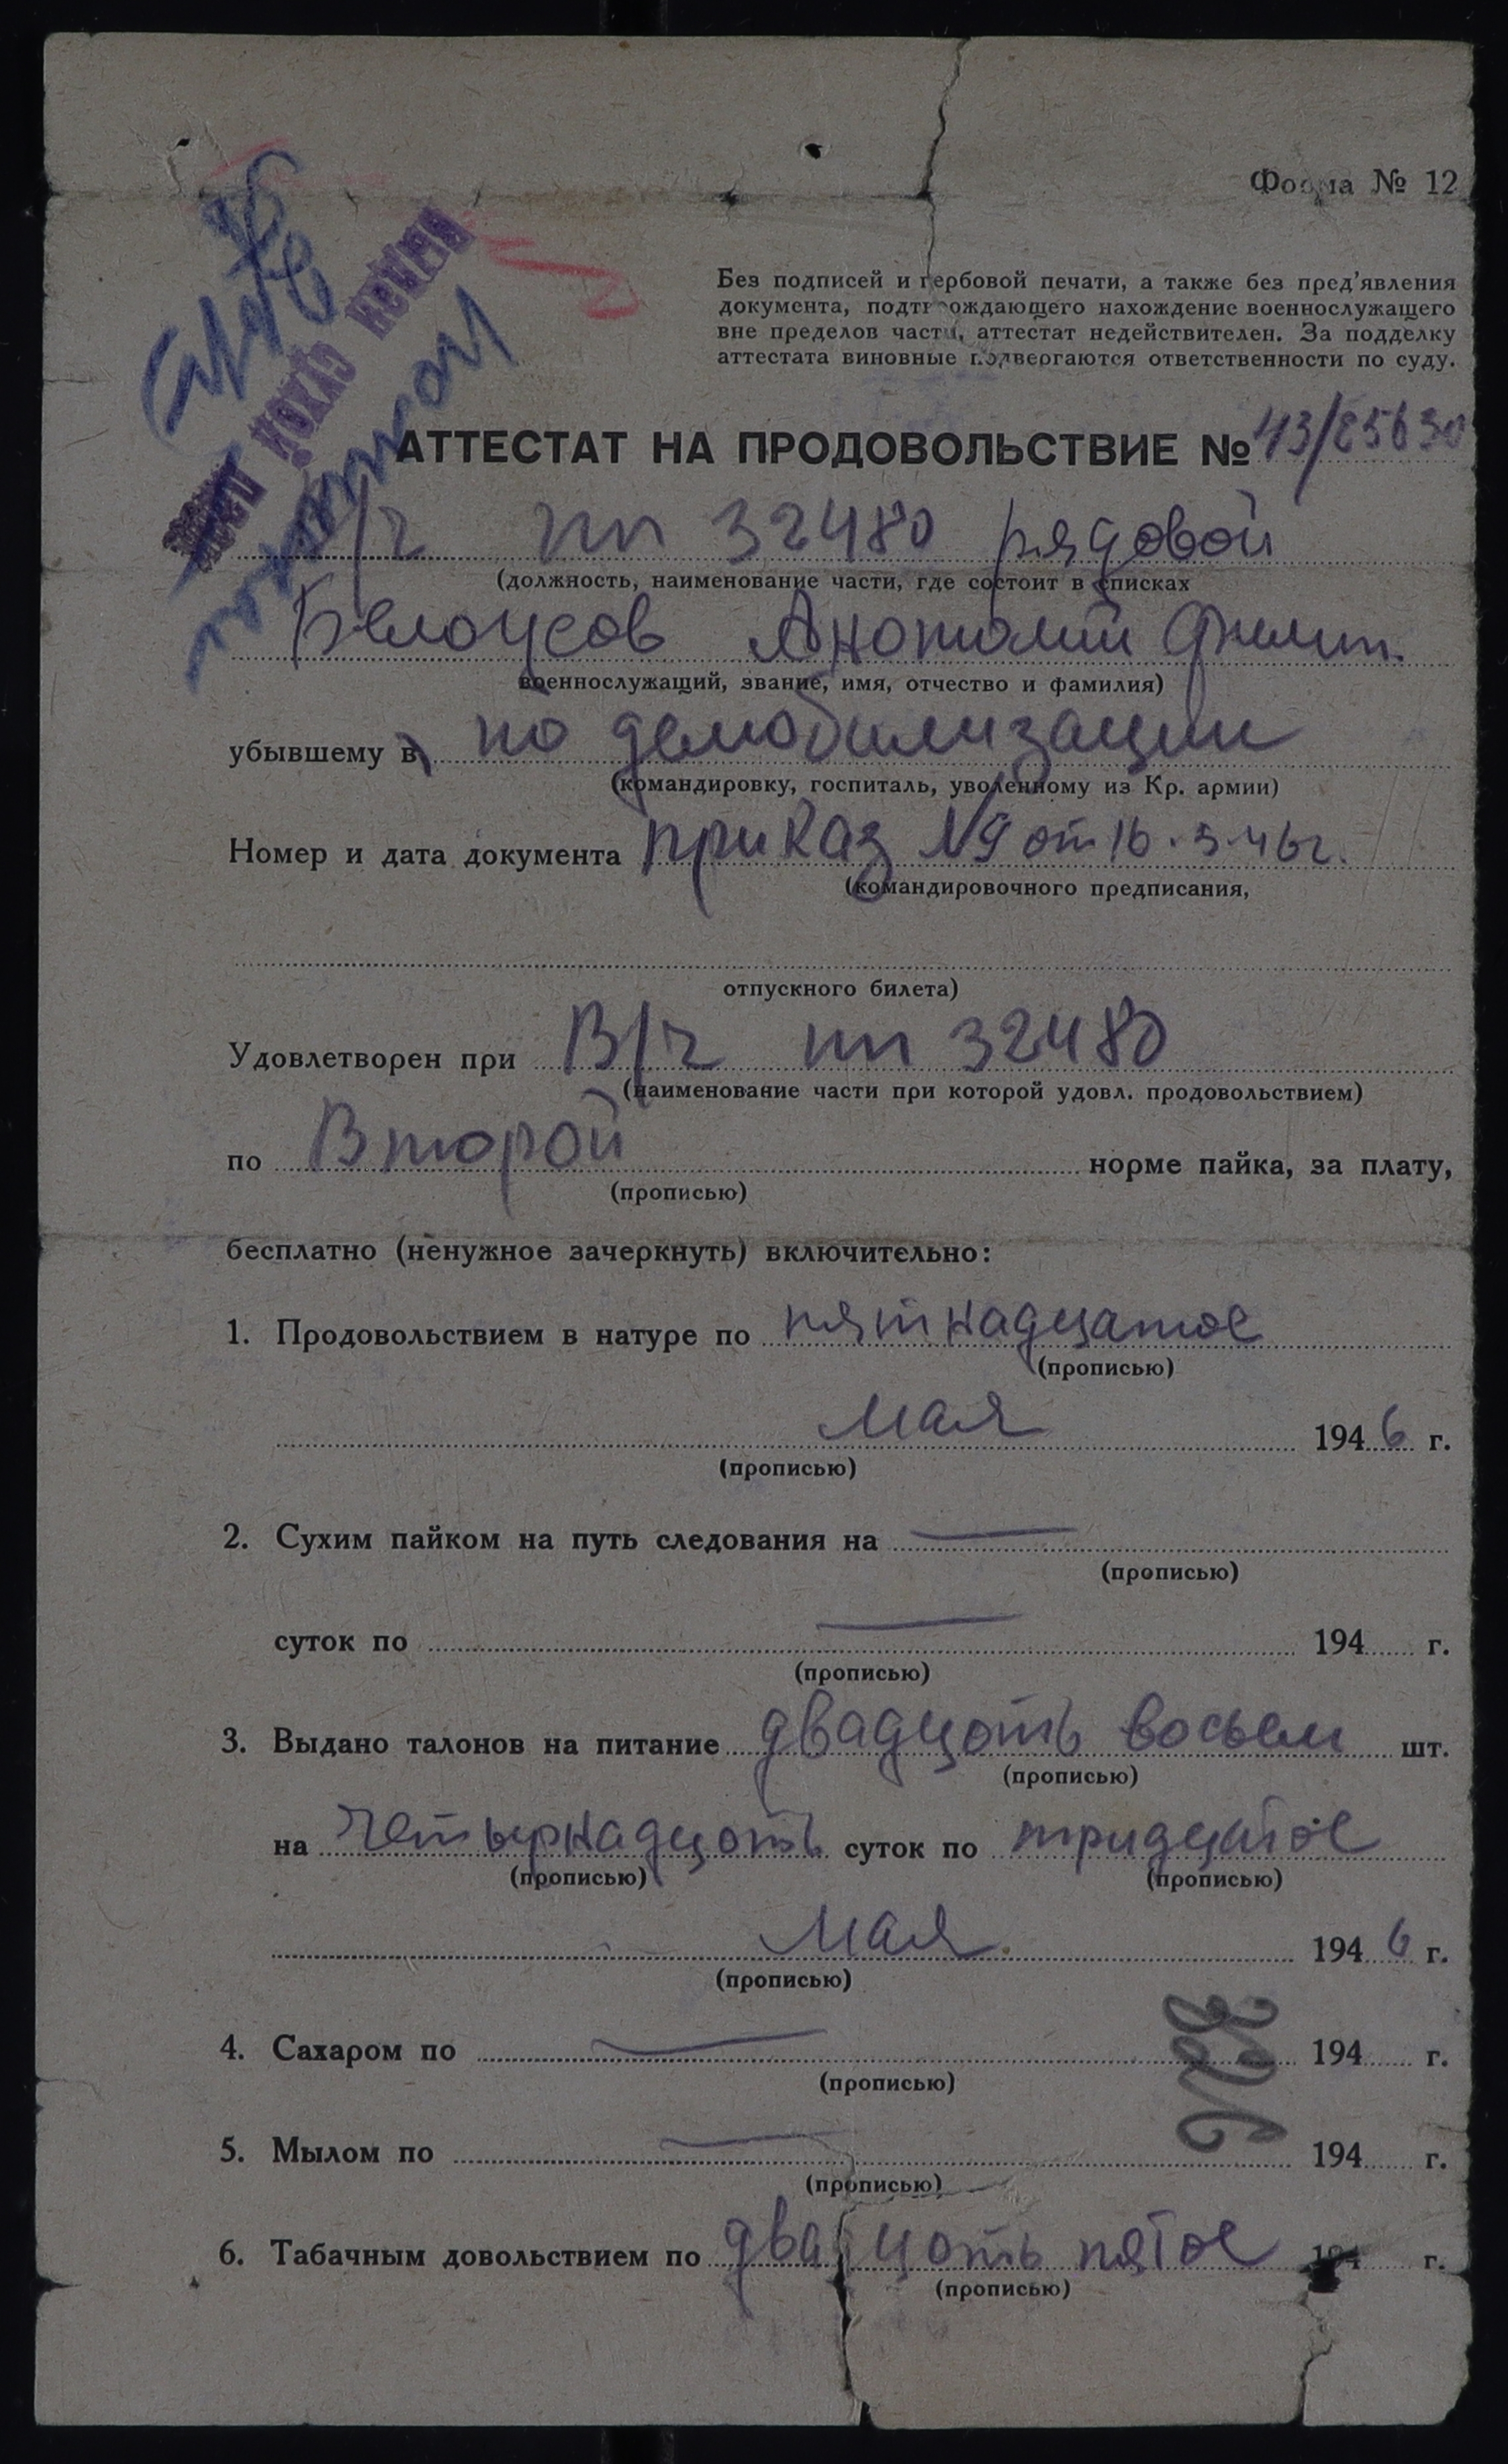 Форма № 12
Без подписей и гербовой печати, а также без пред'явления
документа, подтверждающего нахождение военнослужащего
вне пределов части, аттестат недействителен. За подделку
аттестата виновные подвергаются ответственности по суду.
АТТЕСТАТ НА ПРОДОВОЛЬСТВИЕ № 43/
В/ч пп 32480 рядовой
(должность, наименование части, где состоит в списках
Белоусов Анотолий Филип.
военнослужащий, звание, имя, отчество и фамилия)
убывшему в по демобилизации
(командировку, госпиталь, уволенному из Кр. армии)
Номер и дата документа приказ №9 от 16.5.46г.
(командировочного предписания,
отпускного билета)
Удовлетворен при В/ч пп 32480
(наименование части при которой удовл. продовольствием)
по Второй норме пайка, за плату,
(прописью)
бесплатно (ненужное зачеркнуть) включительно:
1. Продовольствием в натуре по пятнадцатое
(прописью)
мая 1946 г.
(прописью)
2. Сухим пайком на путь следования на —
(прописью)
суток по — 194 г.
(прописью)
3. Выдано талонов на питание двадцоть восьем шт.
(прописью)
на четырнадцоть суток по тридцатое
(прописью) (прописью)
мая 1946 г.
(прописью)
4. Сахаром по — 194 г.
(прописью)
5. Мылом по — 194 г.
(прописью)
6. Табачным довольствием по двадцоть пятое 194 г.
(прописью)